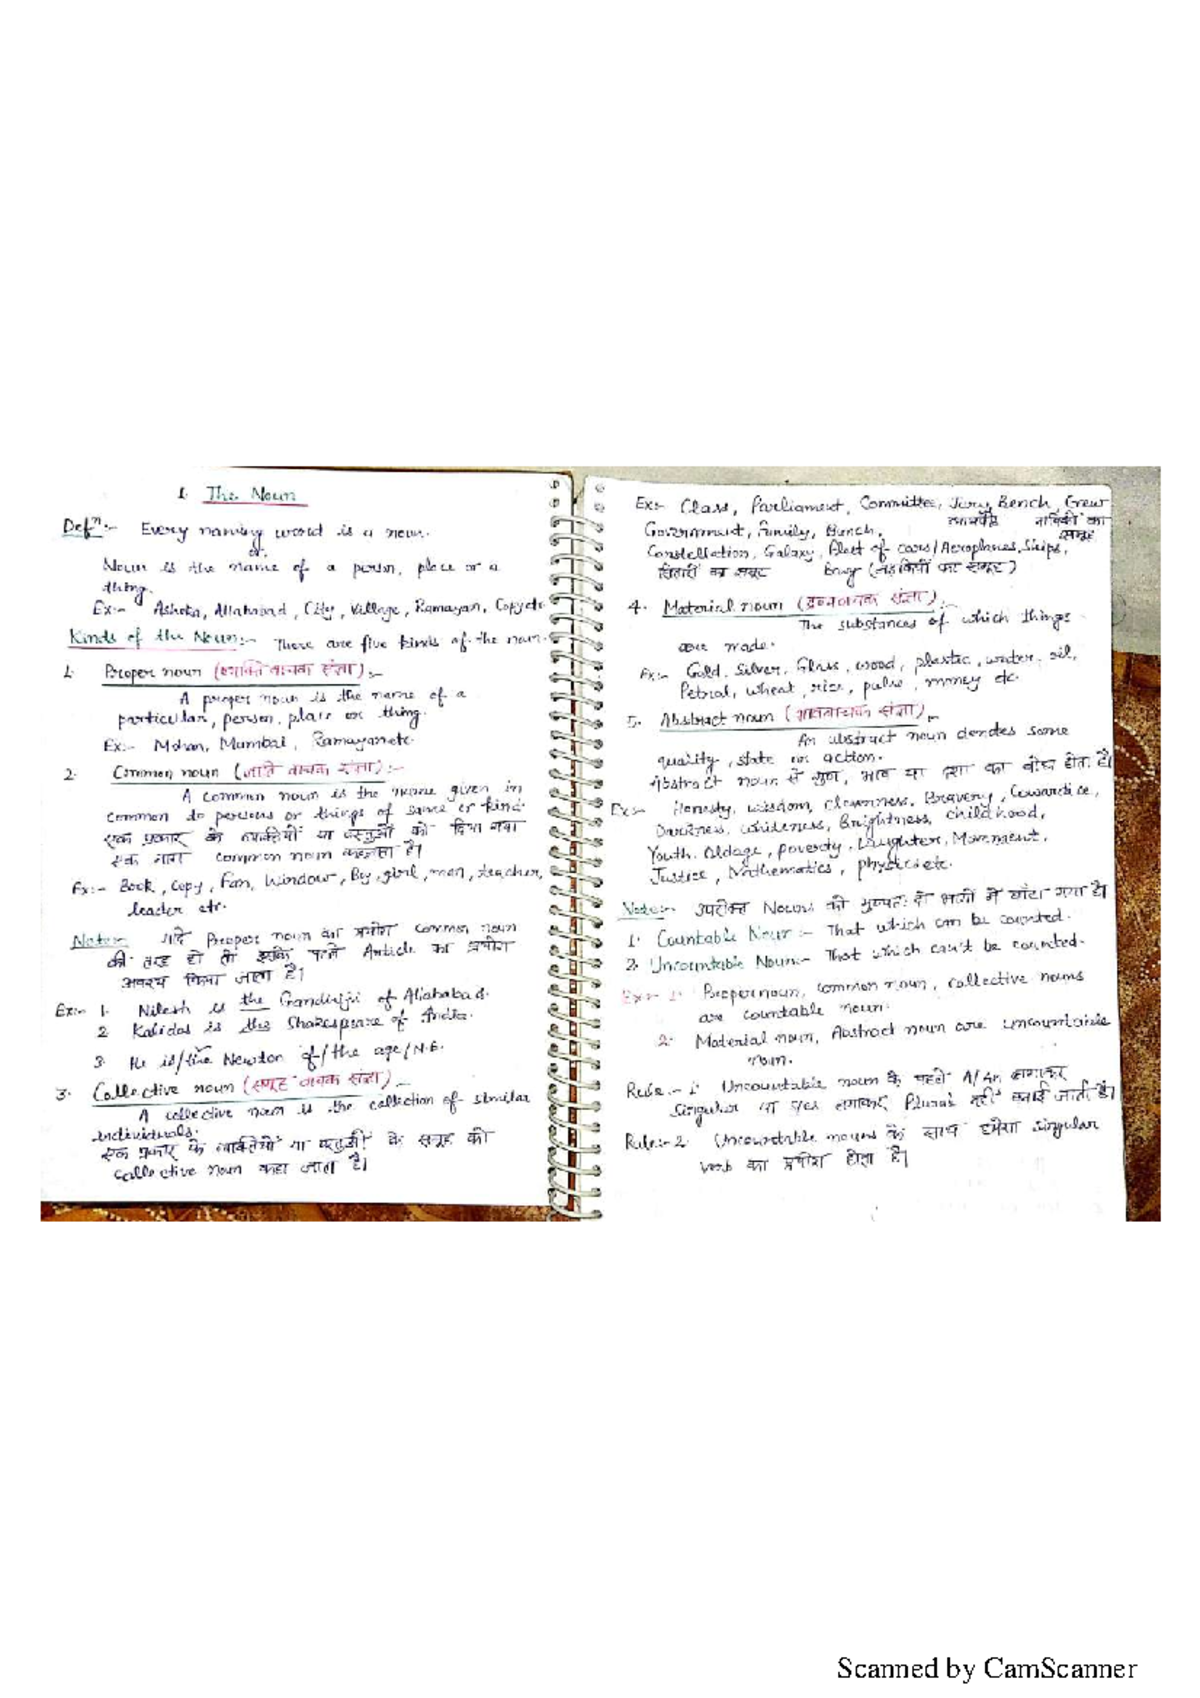 1. The Noun
Defⁿ:- Every naming word is a noun.
or
Noun is the name of a person, place or a
thing.
Ex:- Ashoka, Allahabad, City, Village, Ramayan, Copy etc
Kinds of the Noun:- There are five kinds of the noun.
1. Proper noun (व्यक्ति वाचक संज्ञा):-
A proper noun is the name of a
particular, person, place or thing.
Ex:- Mohan, Mumbai, Ramayan etc.
2. Common noun (जाति वाचक संज्ञा):-
A common noun is the name given in
common to persons or things of same or kind
एक प्रकार के व्यक्तियों या वस्तुओं को दिया गया
एक नाम common noun कहलाता है।
Ex:- Book, Copy, Fan, Window, Boy, girl, man, teacher,
leader etc.
Note:- यदि Proper noun का प्रयोग common noun
की तरह हो तो इसके पहले Article का प्रयोग
अवश्य किया जाता है।
Ex:- 1. Nilesh is the Gandhiji of Allahabad.
2 Kalidas is the Shakespeare of India.
3. He is/the Newton of/the age/N.E.
3. Collective noun (समूह वाचक संज्ञा):-
A collective noun is the collection of similar
individuals.
एक प्रकार के व्यक्तियों या वस्तुओं के समूह को
Collective noun कहा जाता है।
Ex:- Class, Parliament, Committee, Jury, Bench, Crew
न्यायपीठ नाविकों का
समूह
Government, Family, Bunch,
Constellation, Galaxy, Fleet of cars/Aeroplanes, Ships,
सितारों का समूह (लड़कियों का समूह)
4. Material noun (द्रव्यवाचक संज्ञा):-
The substances of which things
are made.
Ex:- Gold, Silver, Glass, wood, plastic, water, oil,
Petrol, wheat, rice, pulse, money etc.
5. Abstract noun (भाववाचक संज्ञा):-
An abstract noun denotes some
quality, state or action.
Abstract noun से गुण, भाव या दशा का बोध होता है।
Ex:- Honesty, wisdom, cleverness, Bravery, Cowardice,
Darkness, whiteness, Brightness, childhood,
Youth, Oldage, poverty, Laughter, Movement,
Justice, Mathematics, physics etc.
Note:- उपरोक्त Nouns को मुख्यतः दो भागों में बाँटा गया है।
1. Countable Noun:- That which can be counted.
2. Uncountable Noun:- That which can't be counted.
Ex:- 1. Proper noun, common noun, collective nouns
are countable noun.
2. Material noun, Abstract noun are uncountable
noun.
Rule:- 1. Uncountable noun के पहले A/An लगाकर
Singular या s/es लगाकर Plural नहीं बनाई जाती है।
Rule:- 2 Uncountable nouns के साथ हमेशा singular
verb का प्रयोग होता है।
Scanned by CamScanner